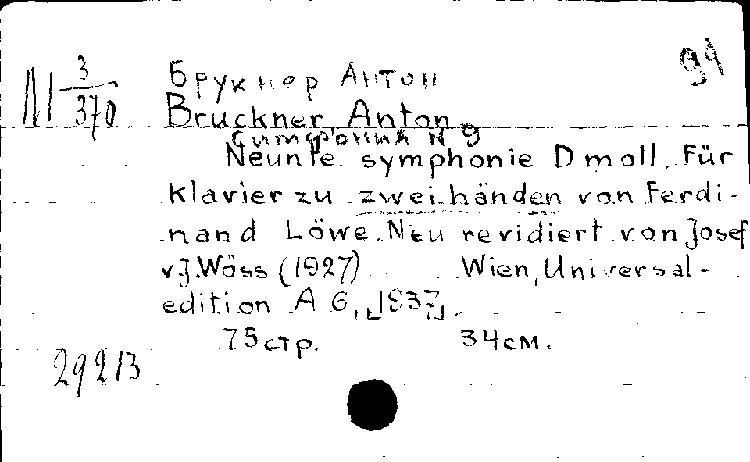 94
М 3/370
Брукнер Антон
Bruckner Anton
Симфония N 9
Neunte symphonie D moll. Für
Klavier zu zweihänden von Ferdi-
nand Löwe. Neu revidiert von Josef
v. J. Wöss (1927) Wien, Universal-
edition A G, [1937].
75 стр. 34 см.
29213